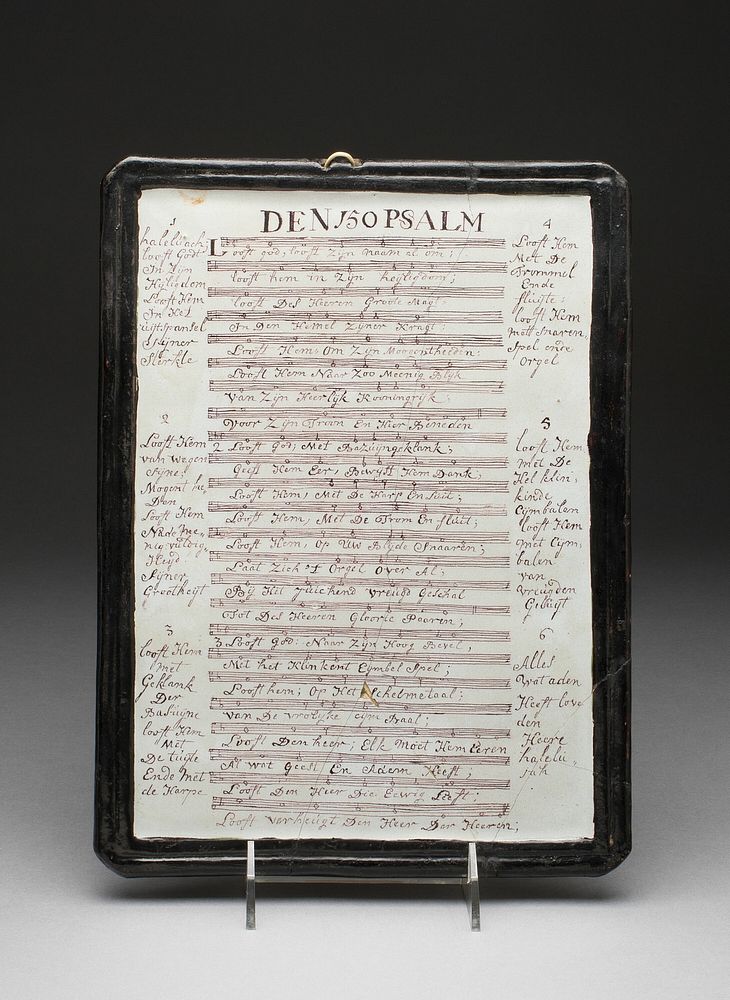 DEN 150 PSALM
1
halelujach;
looft Godt
In Zijn
Hyligdom
Looft Hem
In Het
uijtspansel
Sijner
Sterkte
2
Looft Hem
van wegen
Sijner
Mogent he
Den
Looft Hem
Na de me
nig vuldig
Heijd
Sijner
Grootheijt
3
looft Hem
met
Geklank
Der
Basuijne
looft Hem
Met
De Luijte
Ende met
de Harpe
Looft god; looft Zijn naam al om;
looft hem in Zijn heyligdom;
looft Des Heeren Groote Magt
In Den Hemel Zijner Kragt;
Looft Hem; Om Zijn Moogentheedin:
Looft Hem Naar Zoo Meenig Blyk
van Zyn Heerlyk Kooningryk;
Voor Zyn Troon En Hier Beneden
2 Looft God; Met Bazuyngeklank;
Geeft Hem Eer; Bewyst Hem Dank;
Looft Hem; Met De Harp En Luit;
Looft Hem; Met De Trom En fluit;
Looft Hem; Op Uw Blyde Snaaren;
Laat Zich 't Orgel Over Al;
By Het Juichend vreugd Geschal
Tot Des Heeren Gloorie Paaren;
3 Looft God; Naar Zyn Hoog Bevel,
Met het Klinkent Cymbel Spel;
Looft hem; Op Het Schelmetaal;
van De vrolyke Cym Baal;
Looft Den heer; Elk Moet Hem Eeren
Al wat Geest En Adem Heeft;
Looft Den Heer Die Eewig Leeft;
Looft verheugt Den Heer Der Heeren;
4
Looft Hem
Met De
Trommel
Ende
fluijte;
looft Hem
mett Snaren
Spel ende
Orgel
5
looft Hem
met De
Hel klin,
kinde
Cymbalen
looft Hem
met Cym,
balen
van
vreugden
Geluijt
6
Alles
Wat aden
Heeft love
den
Heere
halelu-
jah